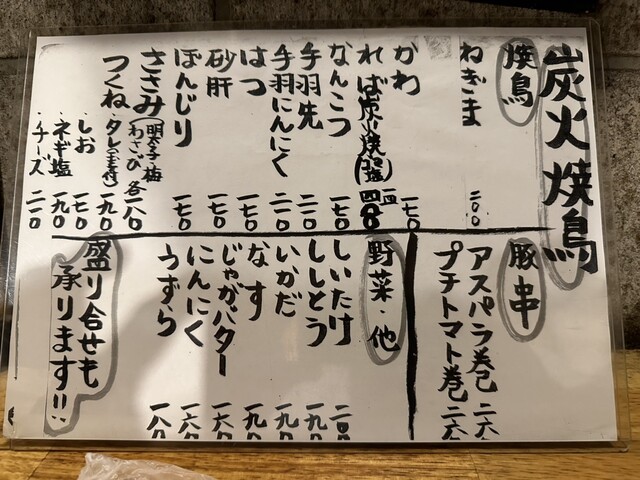 炭火焼鳥
焼鳥
ねぎま 二〇〇
かわ 一七〇
れば炭火焼
なんこつ 一七〇
手羽先
手羽にんにく
はつ 一七〇
砂肝 一七〇
ぼんじり 一七〇
ささみ(明太子・梅 わさび 各一八〇
つくね・タレ(玉子付) 一九〇
・しお 一七〇
・ネギ塩 一九〇
・チーズ 二一〇
豚串
アスパラ巻 二六
プチトマト巻 二六
野菜・他
しいたけ
ししとう 一九
いかだ 一九
なす 一九〇
じゃがバター 一六〇
にんにく 一六〇
うずら 一八〇
盛り合せも
承ります!!